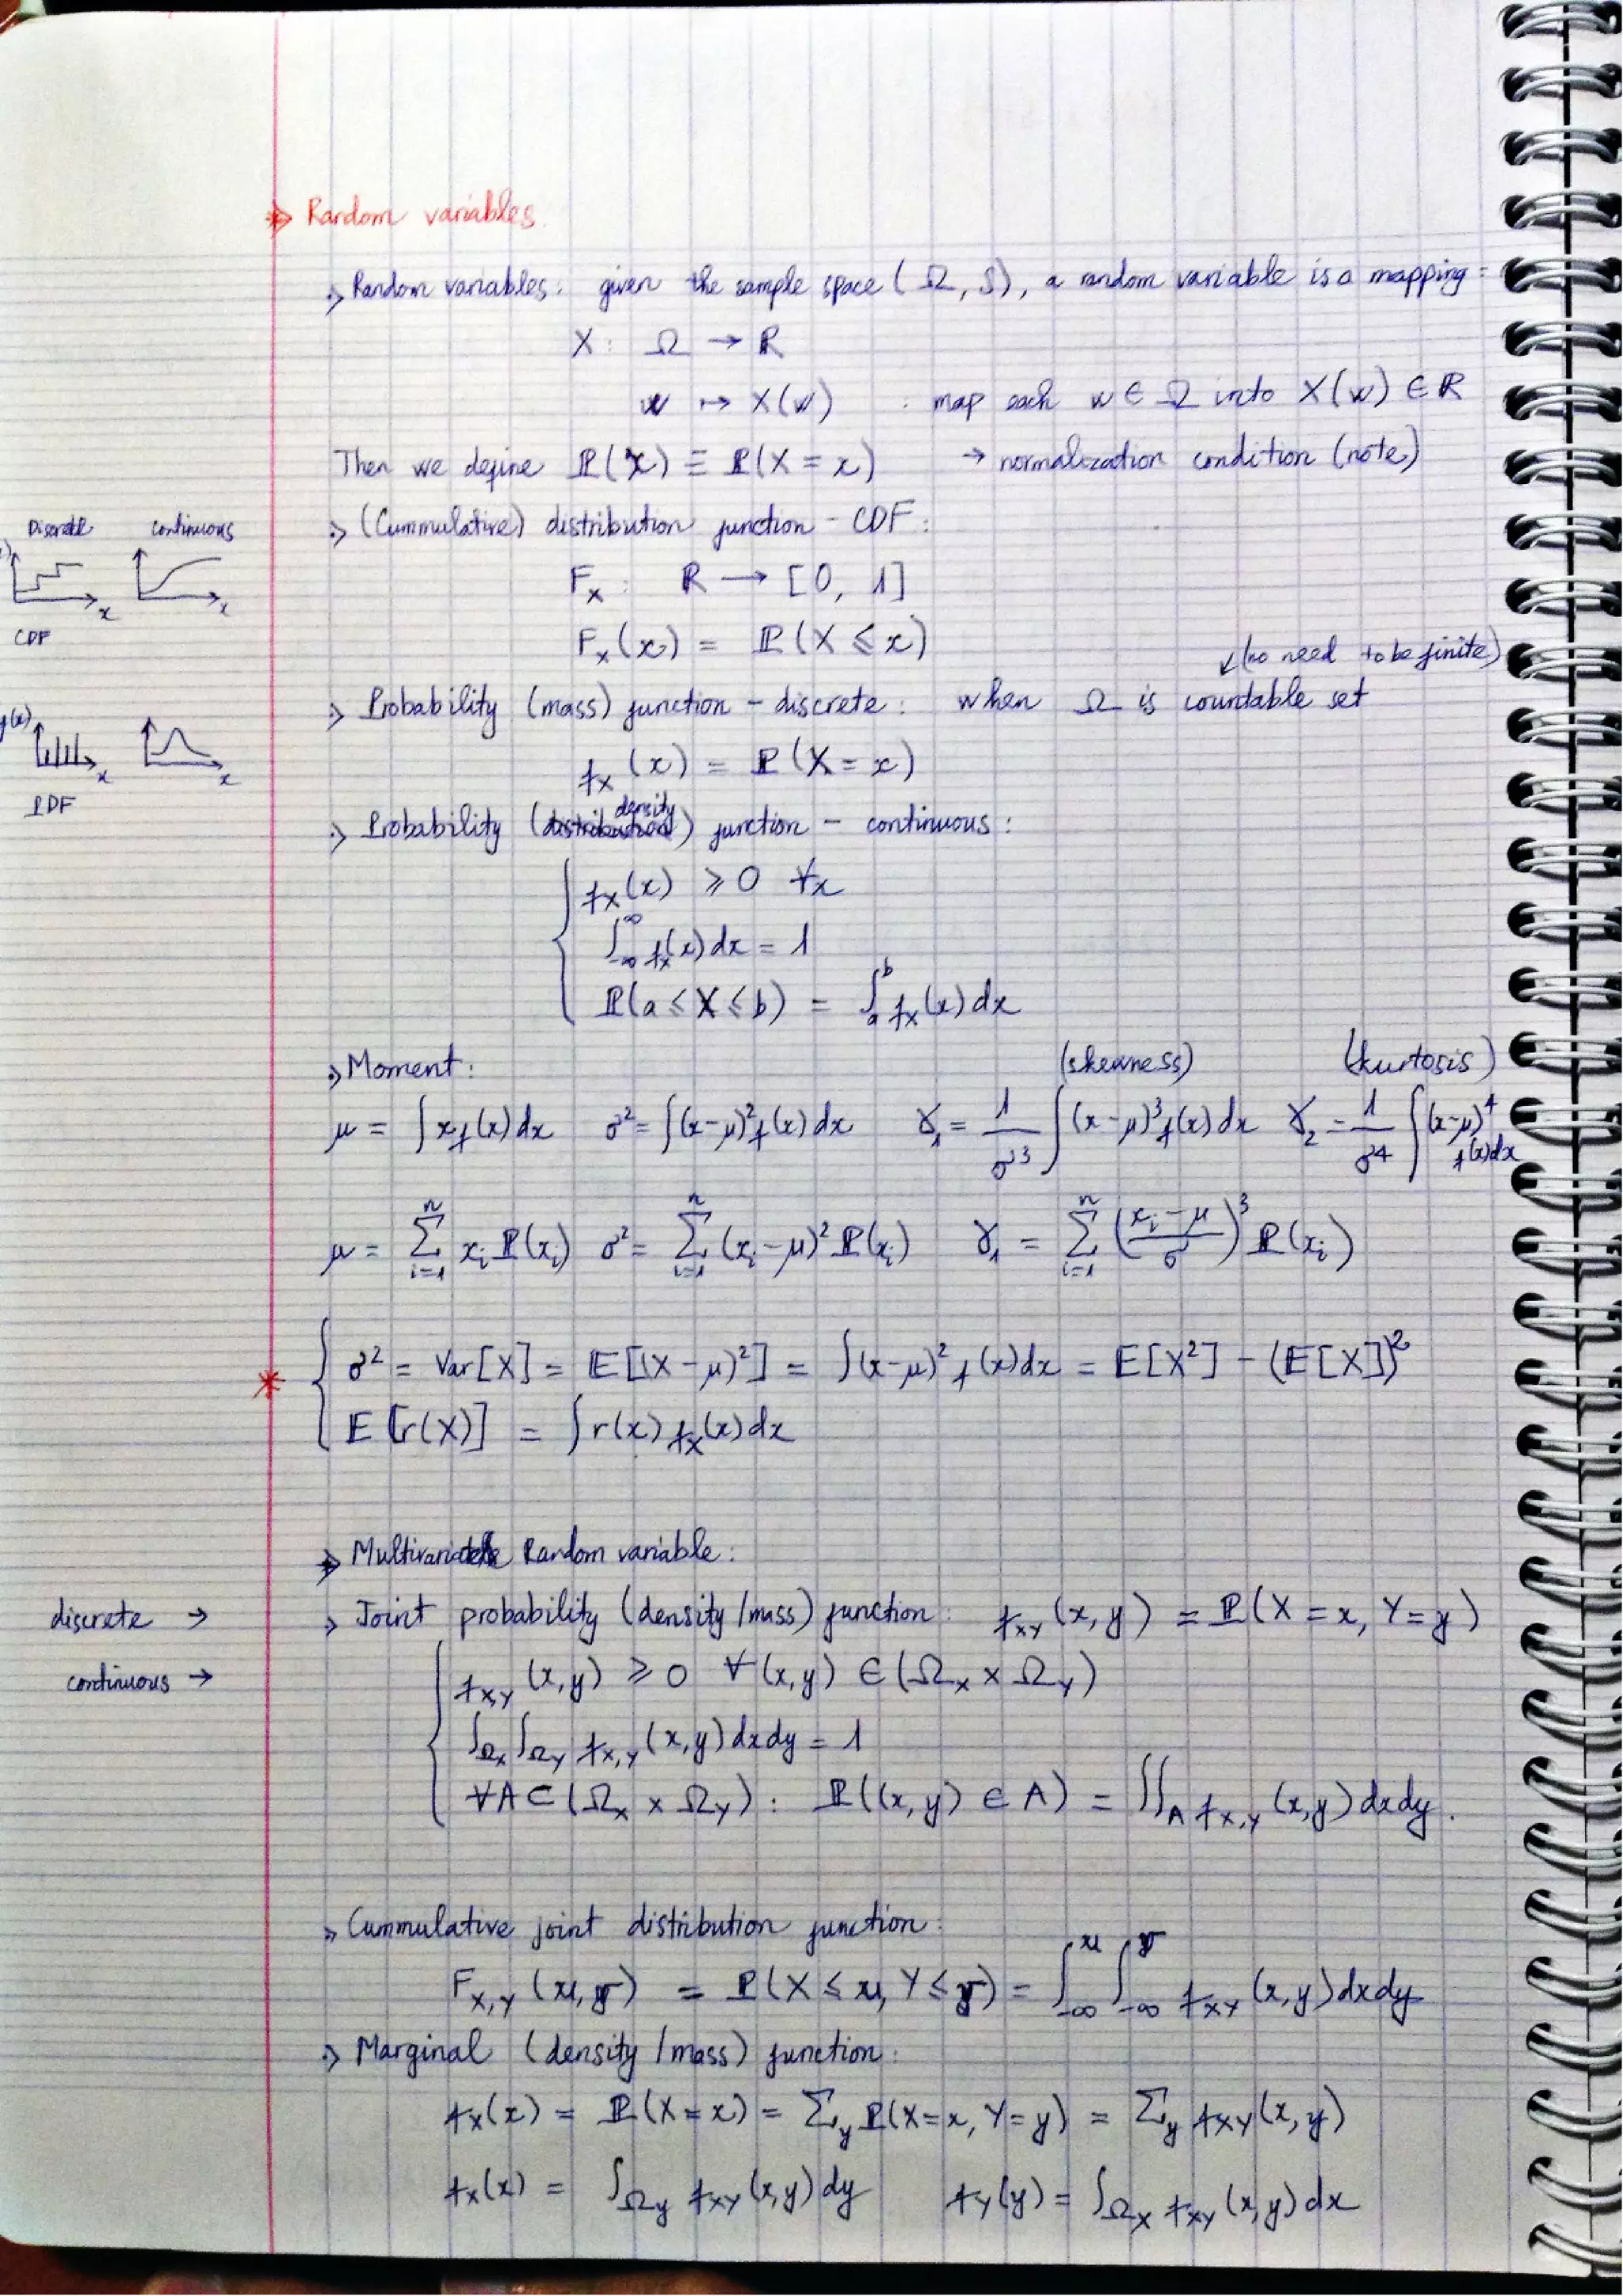 Random variables.
Random variables: given the sample space (Ω, S), a random variable is a mapping:
X: Ω → ℝ
w ↦ X(w) : map each w ∈ Ω into X(w) ∈ ℝ
Then we define ℙ(x) ≡ ℙ(X = x) → normalization condition (note)
Discrete continuous
x x
CDF
(Cummulative) distribution function - CDF:
F_X : ℝ → [0, 1]
F_X(x) = ℙ(X ⩽ x)
↙ (no need to be finite)
Probability (mass) function - discrete: when Ω is countable set
f_X(x) = ℙ(X = x)
x x
PDF
density
Probability (distribution) function - continuous:
f_X(x) ⩾ 0 ∀x
∫_{-∞}^{∞} f_X(x) dx = 1
ℙ(a ⩽ X ⩽ b) = ∫_a^b f_X(x) dx
Moment: (skewness) (kurtosis)
μ = ∫ x f(x) dx σ² = ∫ (x-μ)² f(x) dx γ₁ = 1/σ³ ∫ (x-μ)³ f(x) dx γ₂ = 1/σ⁴ ∫ (x-μ)⁴ f(x) dx
μ = Σ_{i=1}^{n} x_i ℙ(x_i) σ² = Σ_{i=1}^{n} (x_i - μ)² ℙ(x_i) γ₁ = Σ_{i=1}^{n} ((x_i - μ)/σ)³ ℙ(x_i)
σ² = Var[X] = 𝔼[(X - μ)²] = ∫ (x-μ)² f(x) dx = E[X²] - (𝔼[X])²
𝔼[r(X)] = ∫ r(x) f_X(x) dx
Random variable:
discrete → Joint probability (density / mass) function: f_{XY}(x, y) = ℙ(X = x, Y = y)
continuous → f_{X,Y}(x, y) ⩾ 0 ∀(x, y) ∈ (Ω_X × Ω_Y)
∫_{Ω_X} ∫_{Ω_Y} f_{X,Y}(x, y) dx dy = 1
∀A ⊂ (Ω_X × Ω_Y): ℙ((x, y) ∈ A) = ∫∫_A f_{X,Y}(x, y) dx dy.
Cummulative joint distribution function:
F_{X,Y}(u, v) = ℙ(X ⩽ u, Y ⩽ v) = ∫_{-∞}^{u} ∫_{-∞}^{v} f_{XY}(x, y) dx dy
Marginal (density / mass) function:
f_X(x) = ℙ(X = x) = Σ_y ℙ(X = x, Y = y) = Σ_y f_{XY}(x, y)
f_X(x) = ∫_{Ω_Y} f_{XY}(x, y) dy f_Y(y) = ∫_{Ω_X} f_{XY}(x, y) dx